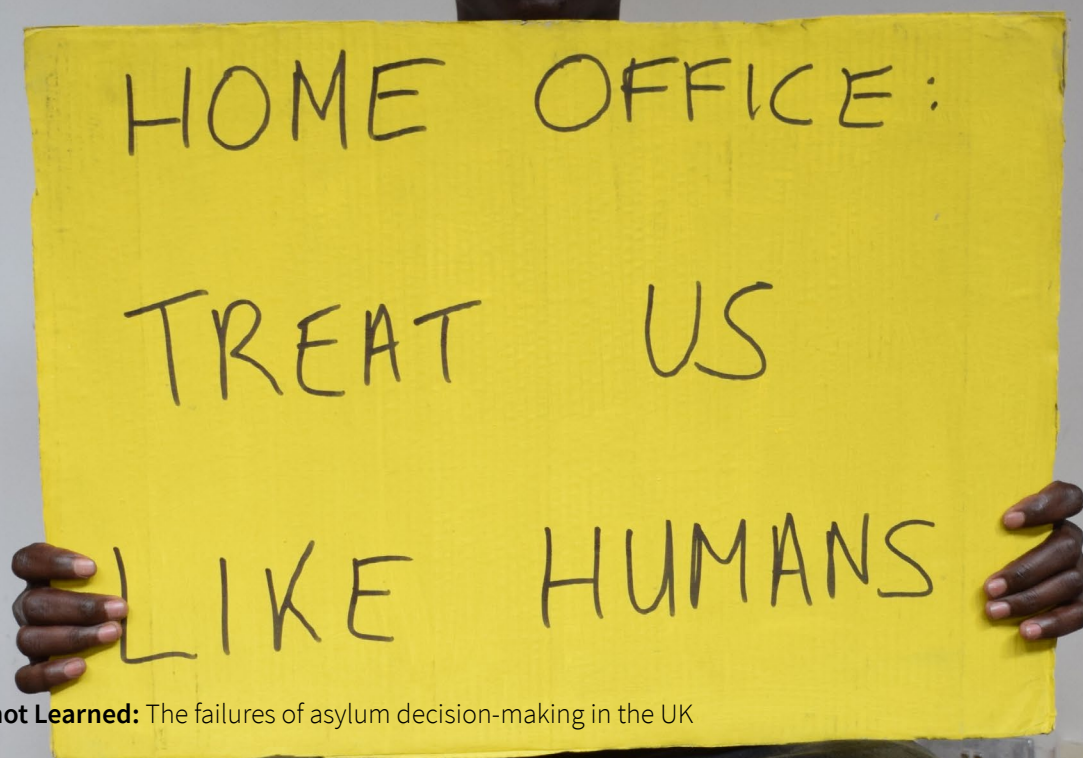 HOME OFFICE:
TREAT US
LIKE HUMANS
not Learned: The failures of asylum decision-making in the UK